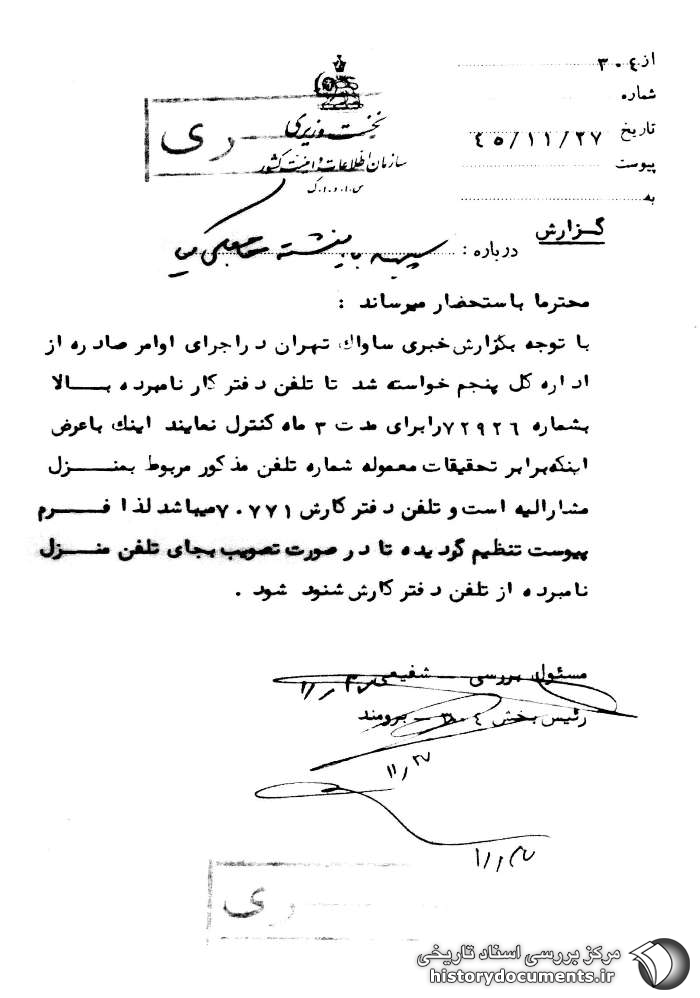 از ۳۰۴
شماره
تاریخ ۴۵/۱۱/۲۷
پیوست
به
سری
نخست وزیری
سازمان اطلاعات و امنیت کشور
س.ا.و.ا.ک
گزارش
درباره : سپهبد بازنشسته
محترما باستحضار میرساند :
با توجه بگزارش خبری ساواک تهران در اجرای اوامر صادره از
اداره کل پنجم خواسته شد تا تلفن دفتر کار نامبرده بالا
بشماره ۷۲۹۲۶ را برای مدت ۳ ماه کنترل نمایند اینک باعرض
اینکه برابر تحقیقات معموله شماره تلفن مذکور مربوط بمنزل
مشارالیه است و تلفن دفتر کارش ۷۰۷۷۱ میباشد لذا فرم
پیوست تنظیم گردیده تا در صورت تصویب بجای تلفن منزل
نامبرده از تلفن دفتر کارش شنود شود .
مسئول بررسی - شفیعی
رئیس بخش ۳۰۴ - برومند
۱۱/۲۷
سری
مرکز بررسی اسناد تاریخی
historydocuments.ir